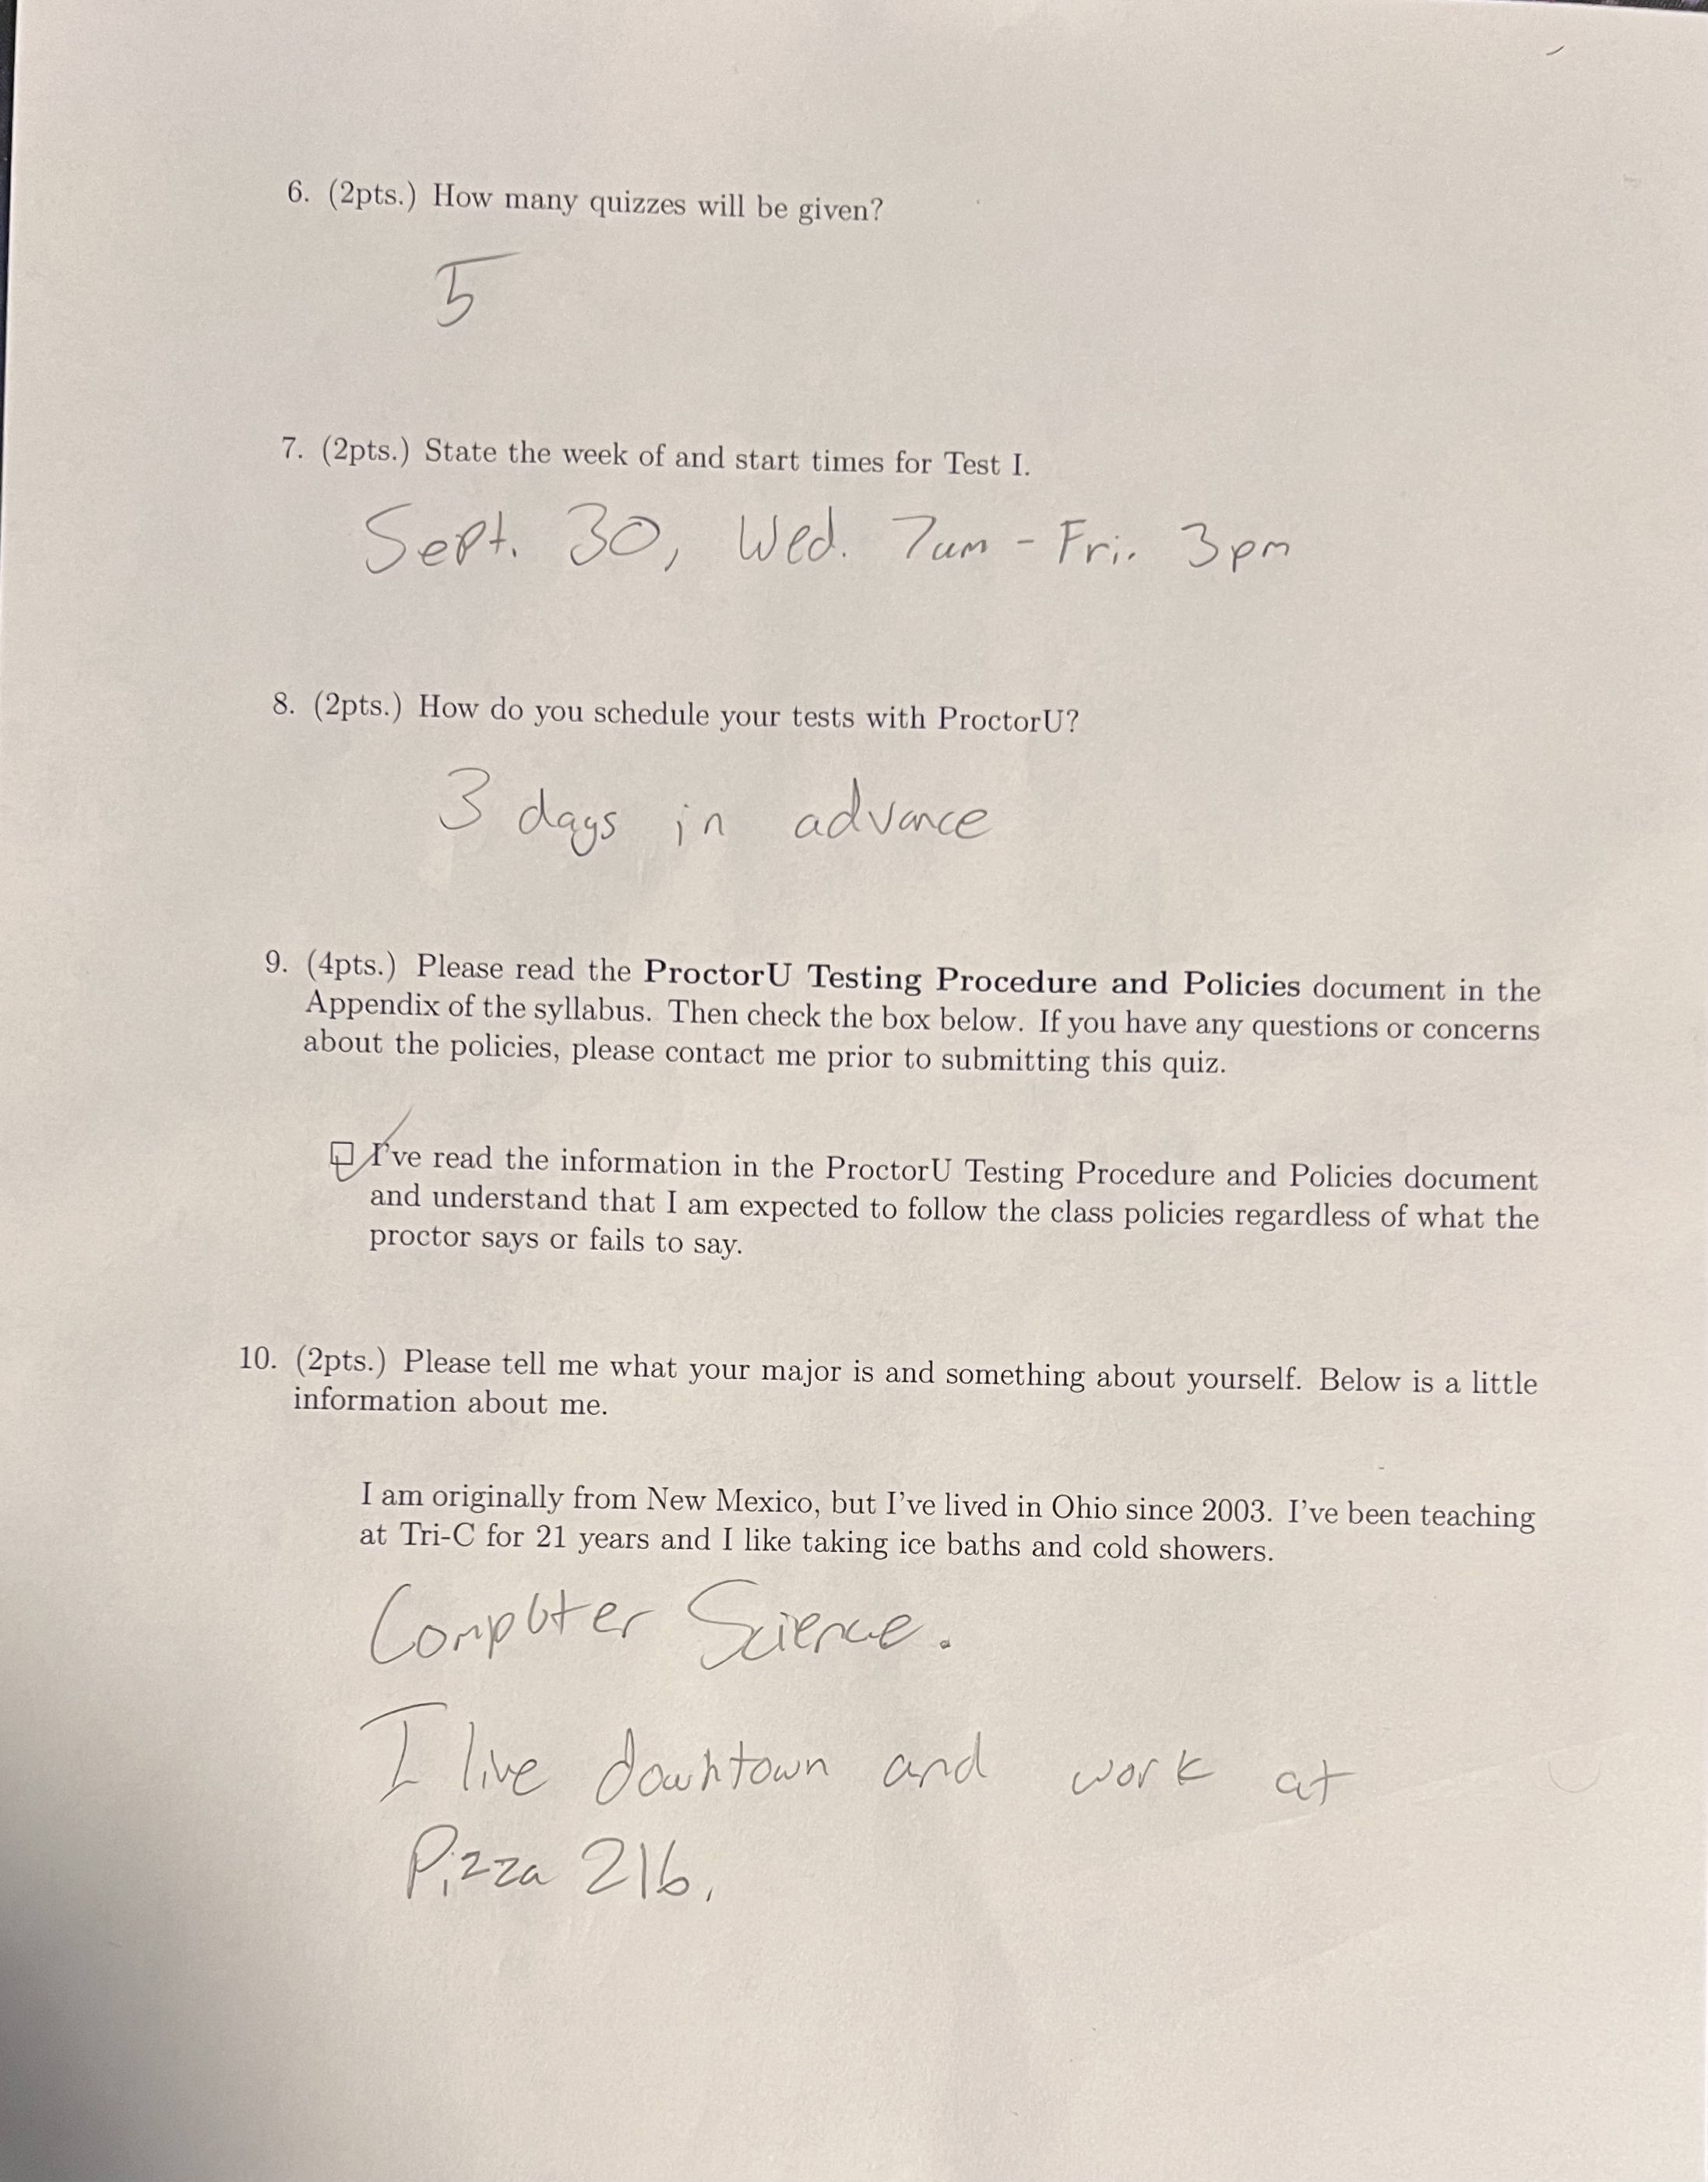 6. (2pts.) How many quizzes will be given?
5
7. (2pts.) State the week of and start times for Test I.
Sept. 30, Wed. 7am - Fri. 3pm
8. (2pts.) How do you schedule your tests with ProctorU?
3 days in advance
9. (4pts.) Please read the ProctorU Testing Procedure and Policies document in the
Appendix of the syllabus. Then check the box below. If you have any questions or concerns
about the policies, please contact me prior to submitting this quiz.
I've read the information in the ProctorU Testing Procedure and Policies document
and understand that I am expected to follow the class policies regardless of what the
proctor says or fails to say.
10. (2pts.) Please tell me what your major is and something about yourself. Below is a little
information about me.
I am originally from New Mexico, but I've lived in Ohio since 2003. I've been teaching
at Tri-C for 21 years and I like taking ice baths and cold showers.
Computer Science.
I live downtown and work at
Pizza 216.